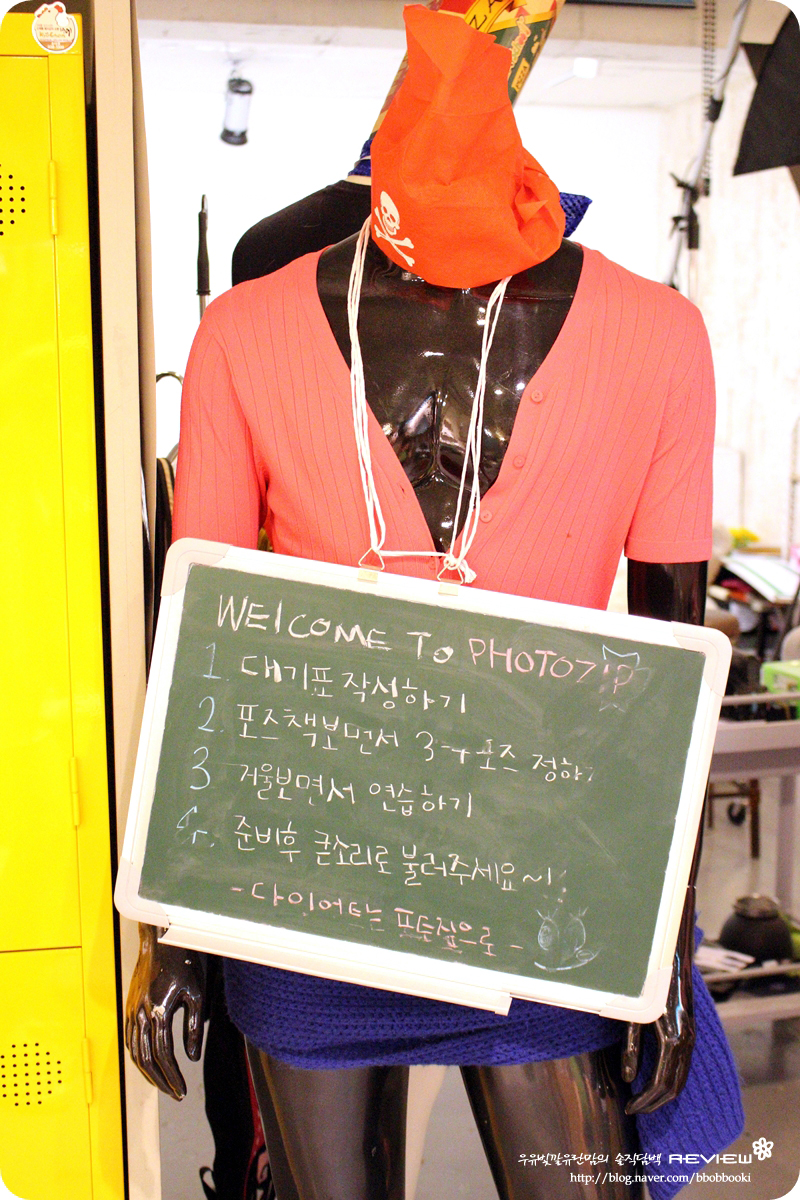 WELCOME TO PHOTOZIP
1. 대기표 작성하기
2. 포즈책보면서 3-4 포즈 정하기
3 거울보면서 연습하기
4. 준비후 큰소리로 불러주세요~!
- 다이어트는 포토집으로 -
우유빛깔유란맘의 솔직담백 REVIEW
http://blog.naver.com/bbobbooki